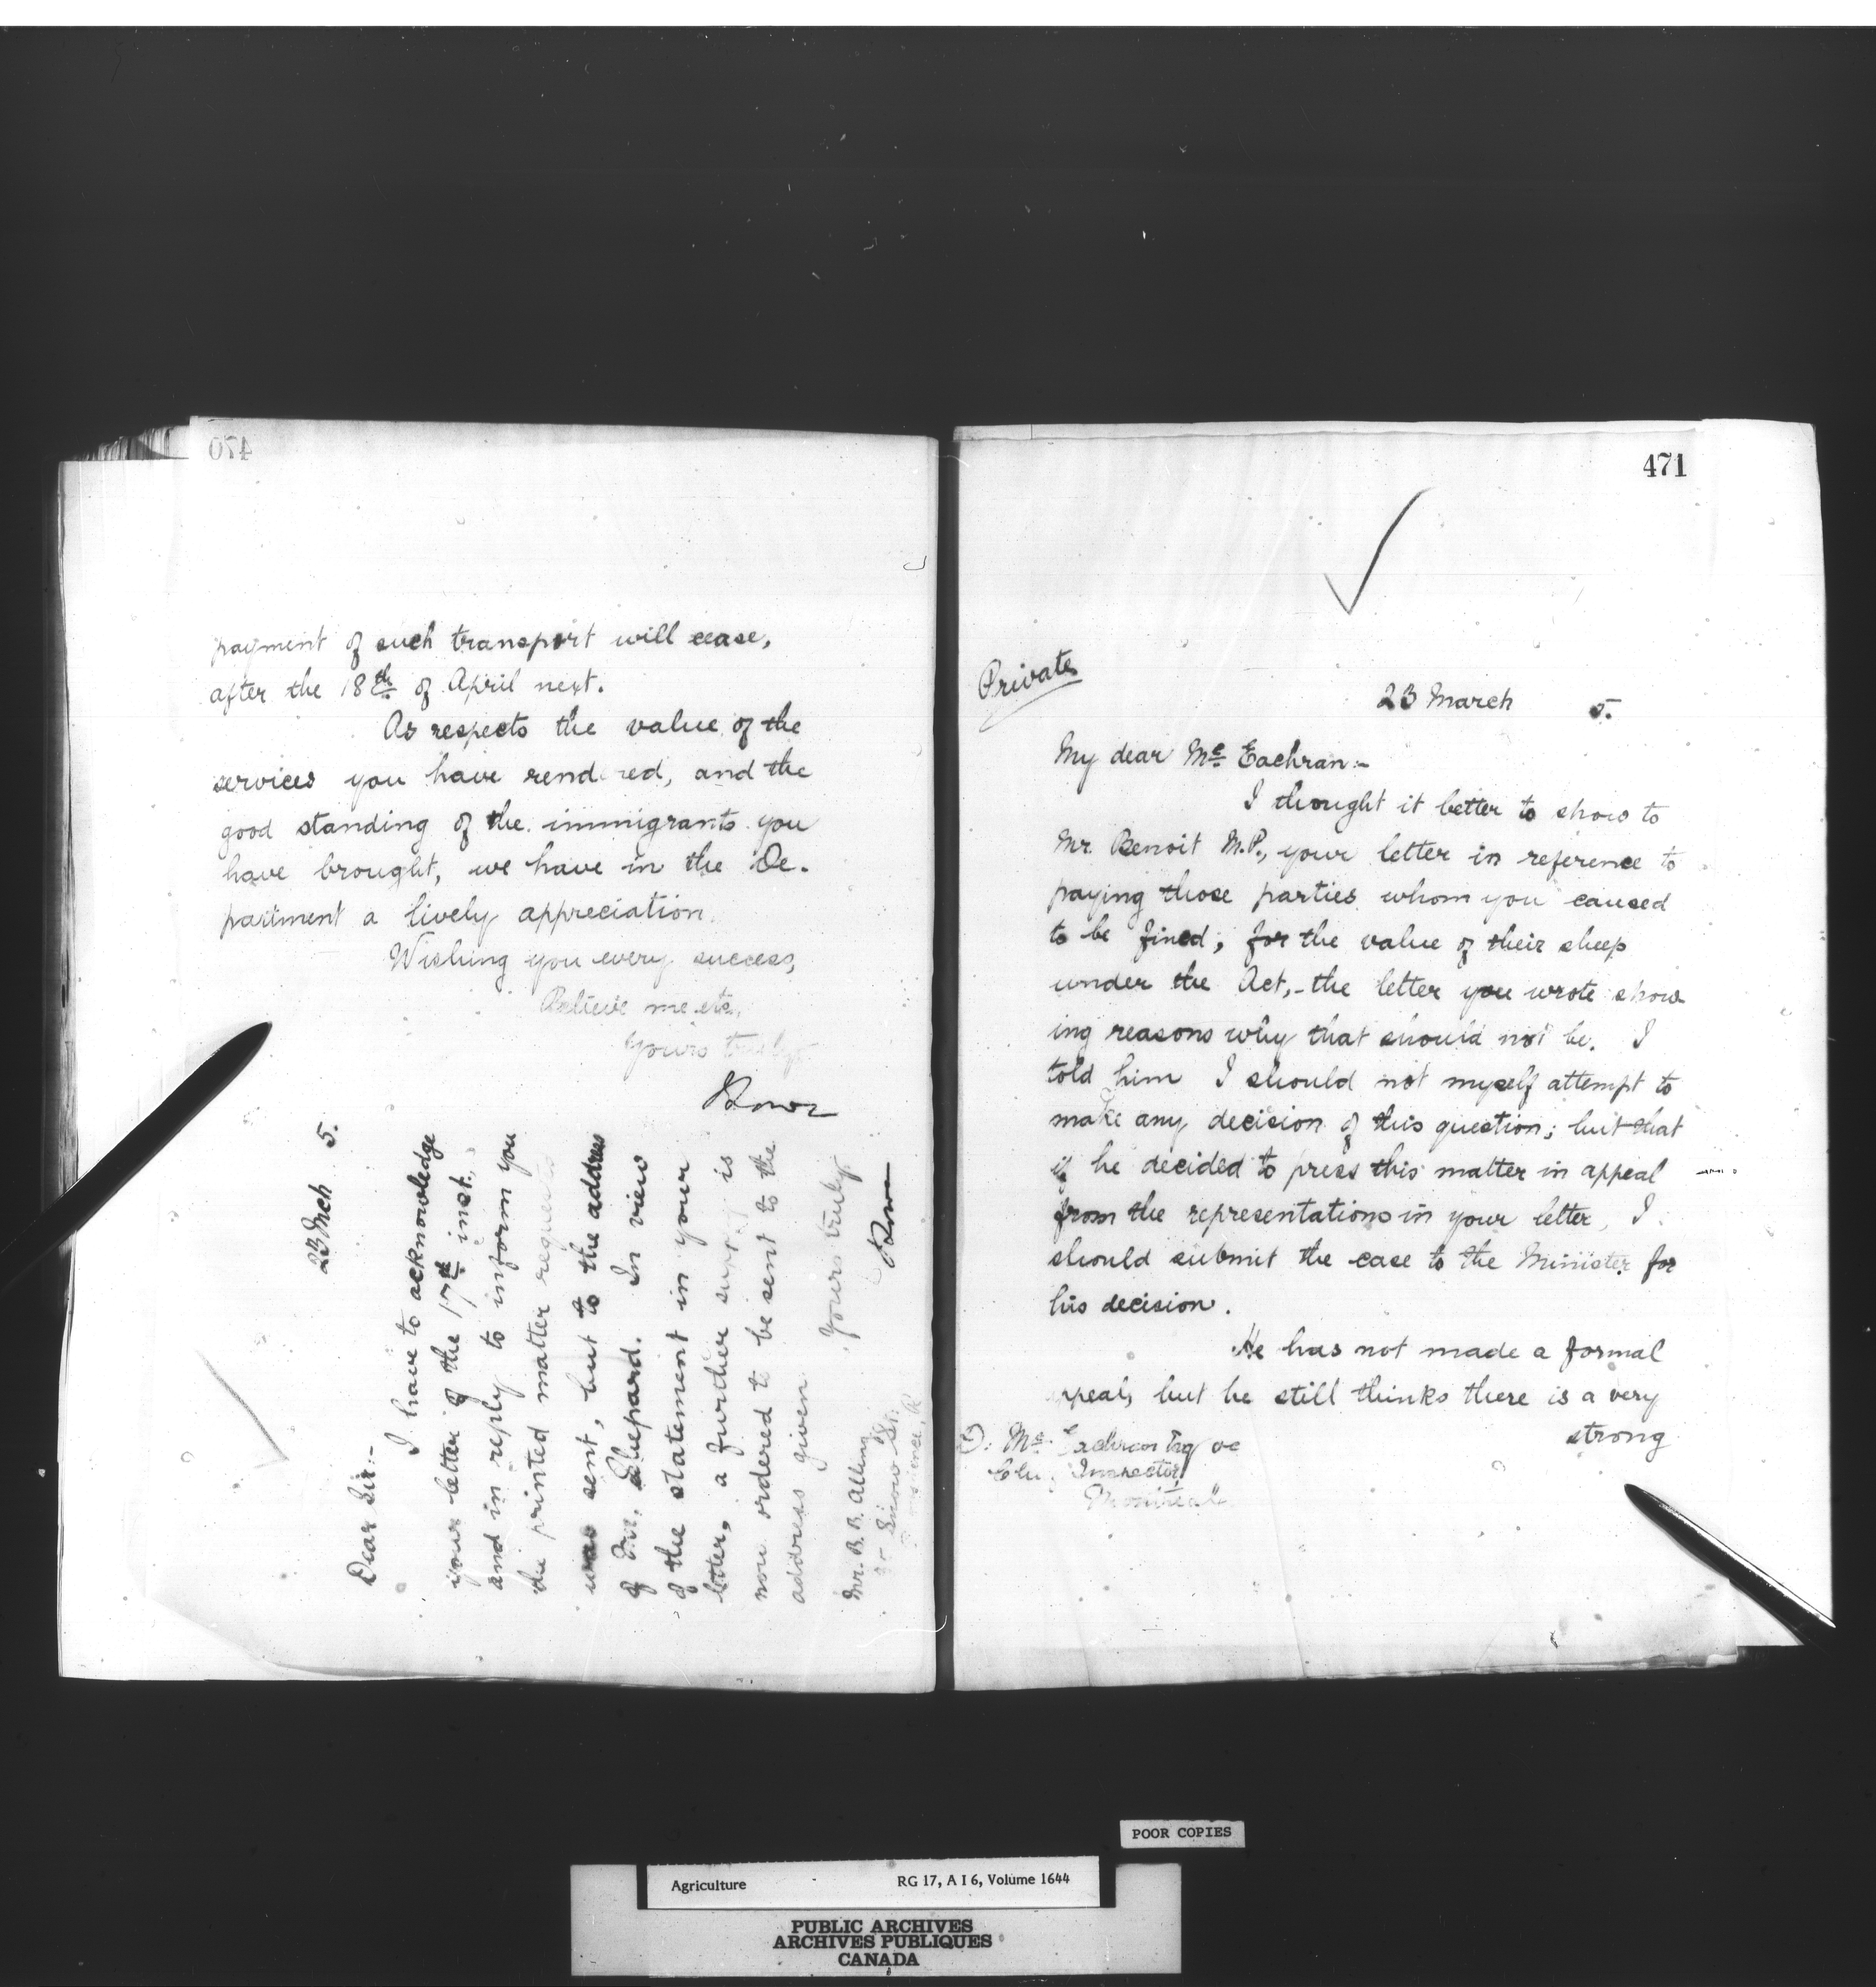 470
payment of such transport will cease,
after the 18th of April next.
As respects the value of the
services you have rendered, and the
good standing of the immigrants you
have brought, we have in the De-
partment a lively appreciation.
Wishing you every success,
Believe me etc,
Yours truly
23 Mch 5.
Dear Sir:-
I have to acknowledge
your letter of the 17th inst.,
and in reply to inform you
the printed matter requested
was sent, but to the address
of Mr. Shepard. In view
of the statement in your
letter, a further supply is
now ordered to be sent to the
address given.
Yours truly
Mr. B. B. Alling
Snow St.
471
Private
23 March 5.
My dear Mc Eachran:-
I thought it better to show to
Mr. Benoit M.P., your letter in reference to
paying those parties whom you caused
to be fined, for the value of their sheep
under the Act,- the letter you wrote show
ing reasons why that should not be. I
told him I should not myself attempt to
make any decision of this question; but that
if he decided to press this matter in appeal
from the representations in your letter, I
should submit the case to the Minister for
his decision.
He has not made a formal
appeal, but he still thinks there is a very
strong
D. Mc Eachran Esq
Inspector
Montreal
POOR COPIES
Agriculture RG 17, A I 6, Volume 1644
PUBLIC ARCHIVES
ARCHIVES PUBLIQUES
CANADA